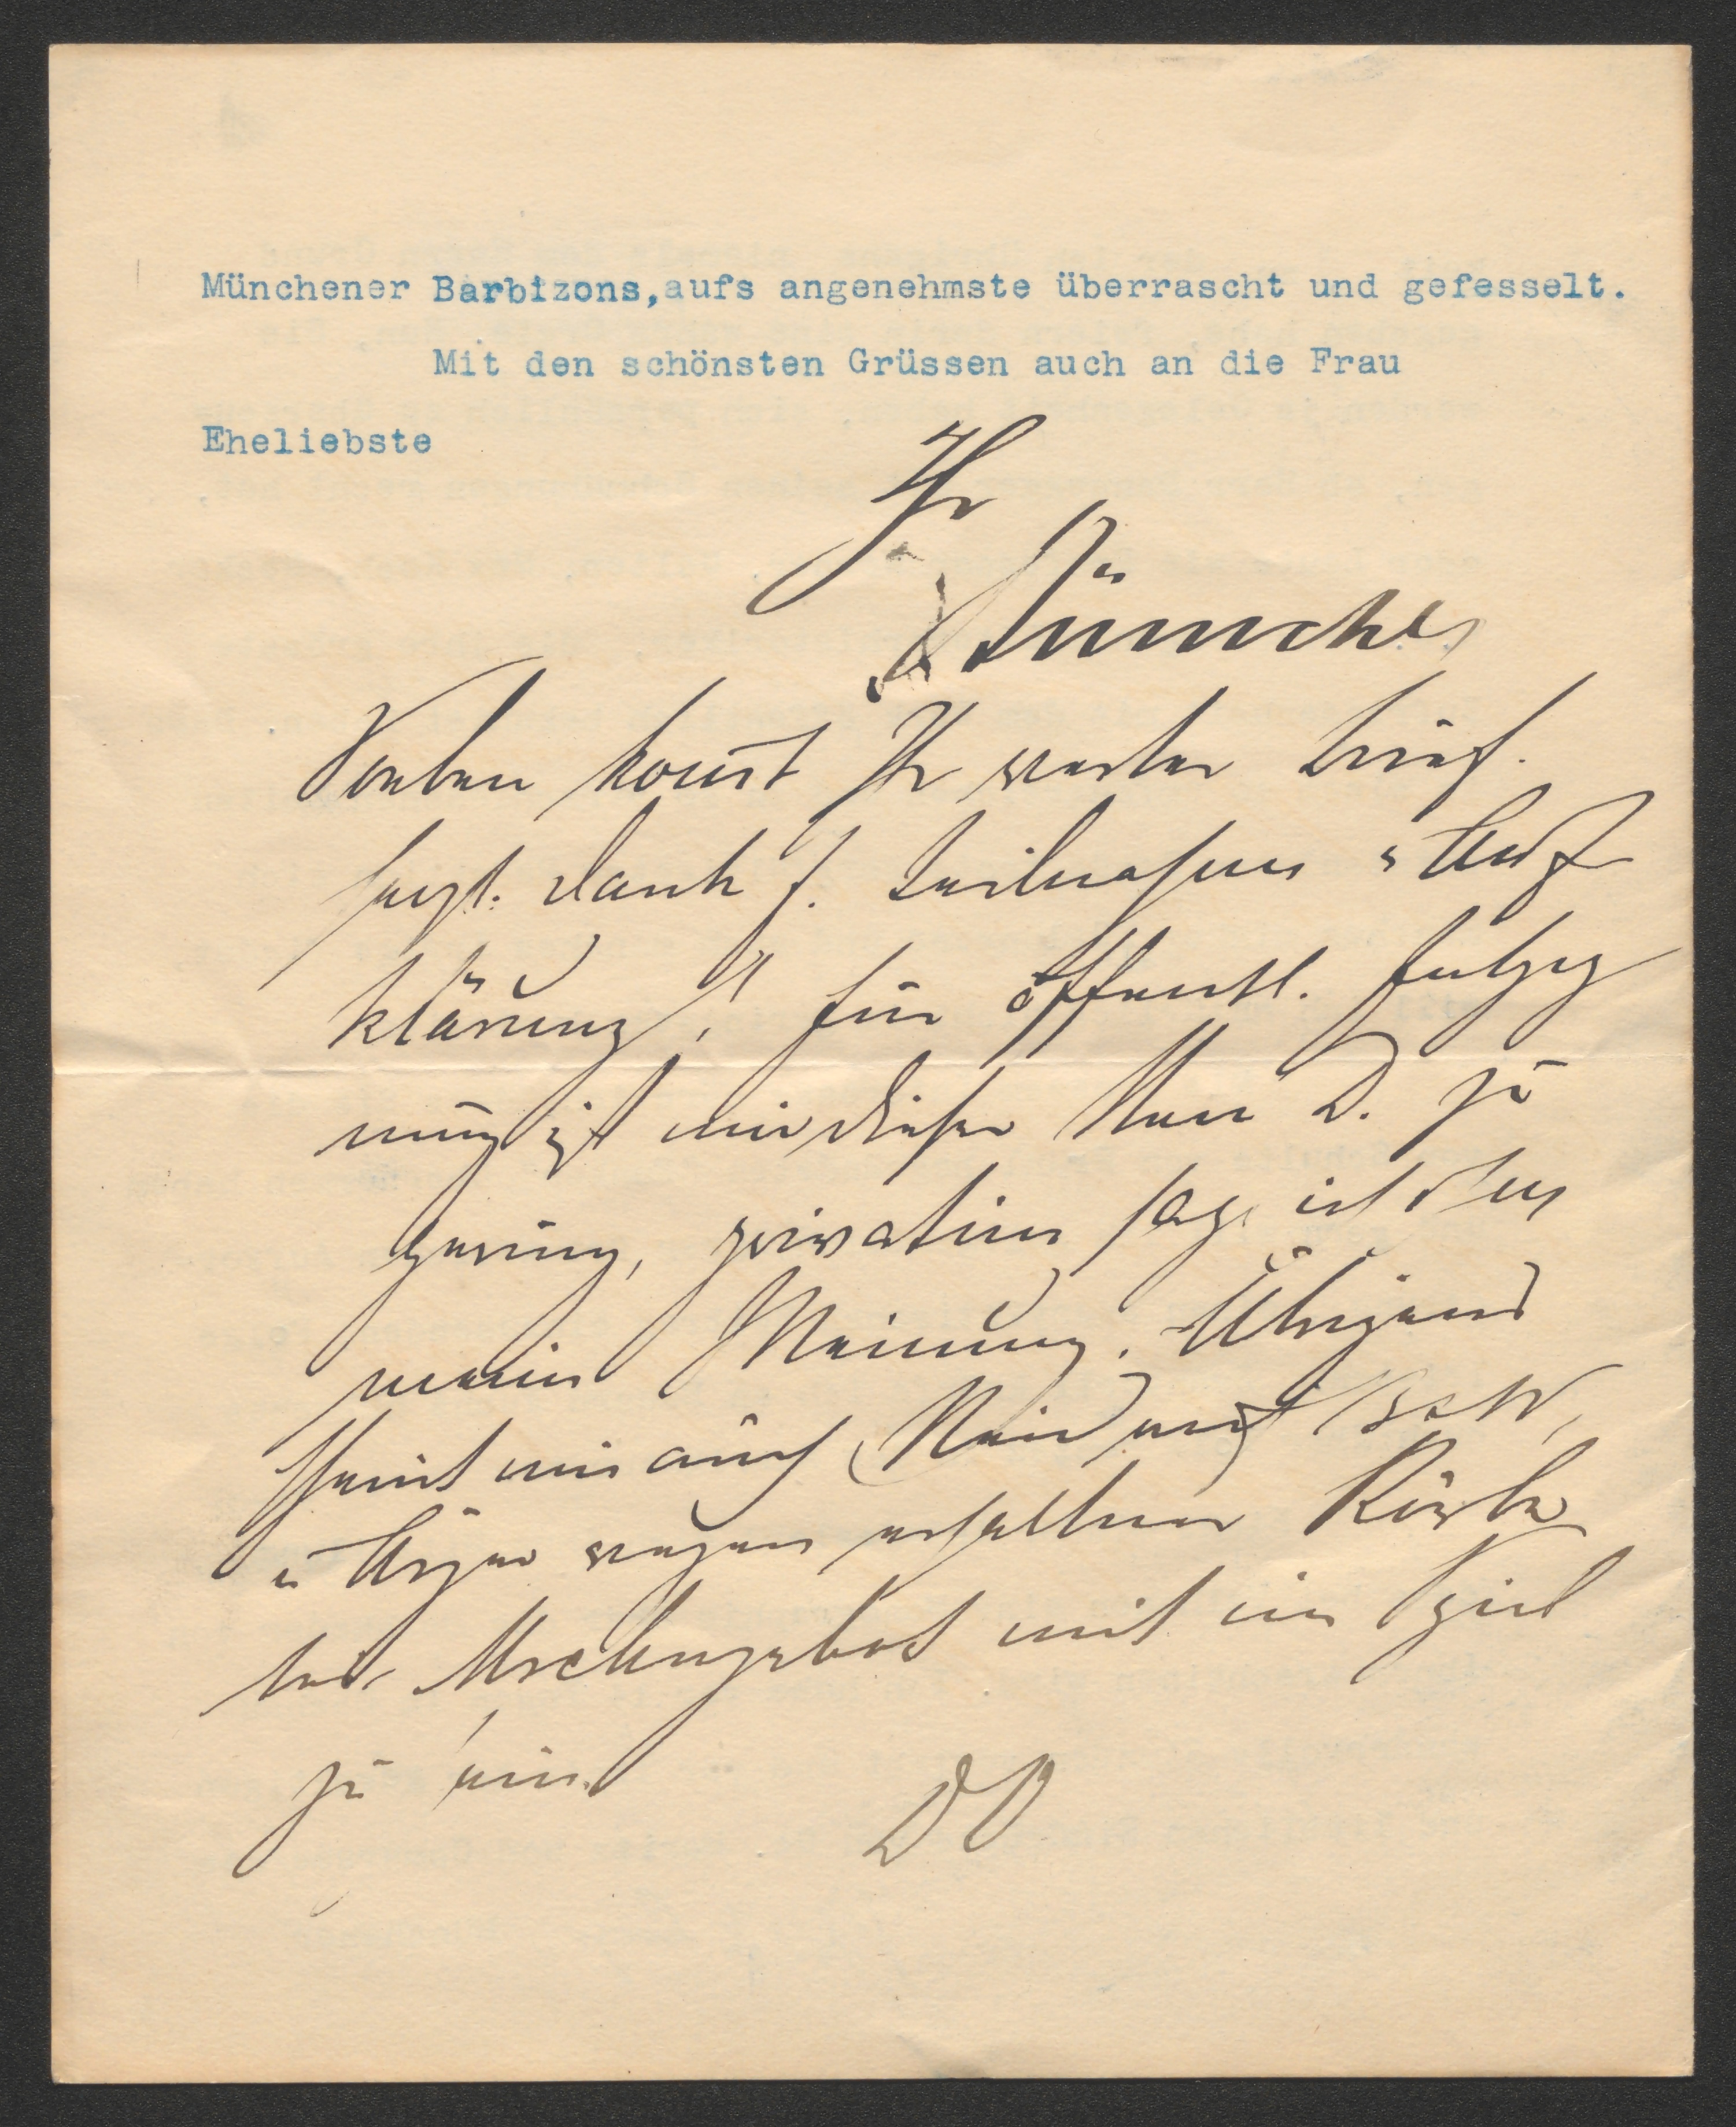 Münchener Barbizons, aufs angenehmste überrascht und gefesselt.
Mit den schönsten Grüssen auch an die Frau
Eheliebste
Ihr
Soeben kommt Ihr werter Brief.
Herzl. Dank f. Teilnahme u Auf
klärung! Für öffentl. Entgeg
nung ist mir dieser Herr D. zu
gering, privatim sage ich ihm
meine Meinung. Übrigens
scheint mir auch Neid
u Ärger wegen erhaltener Körbe
mit im Spiel
zu sein.
DO